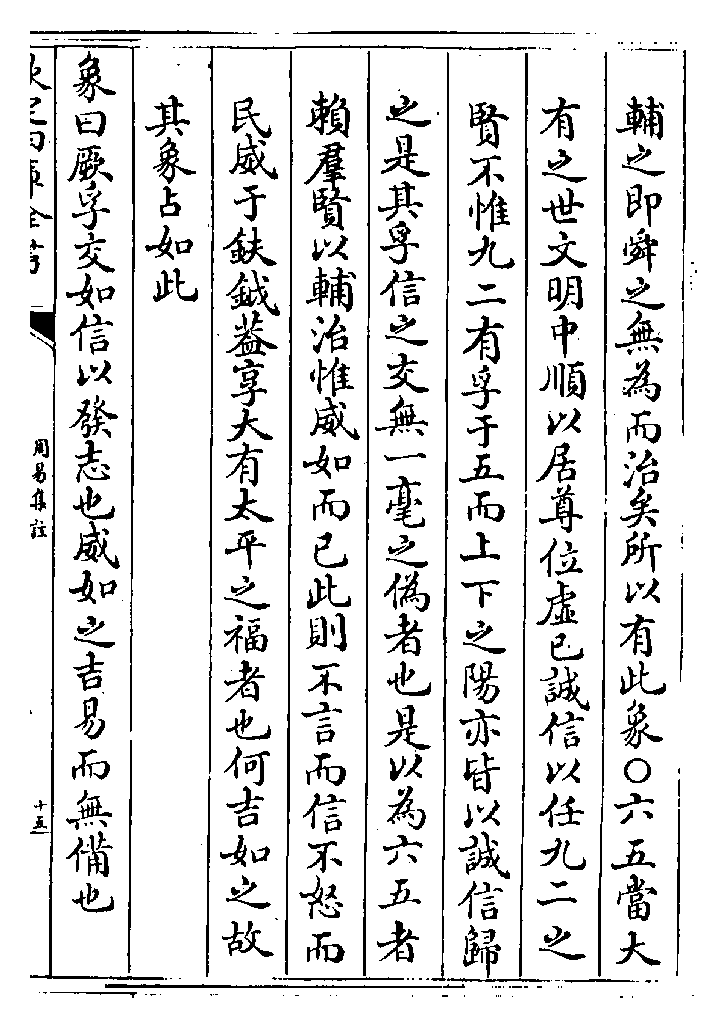 輔之即舜之無為而治矣所以有此象○六五當大
有之世文明中順以居尊位虛已誠信以任九二之
賢不惟九二有孚于五而上下之陽亦皆以誠信歸
之是其孚信之交無一毫之偽者也是以為六五者
賴羣賢以輔治惟威如而已此則不言而信不怒而
民威于鈇鉞葢享大有太平之福者也何吉如之故
其象占如此
象曰厥孚交如信以發志也威如之吉易而無備也
周易集註
十五